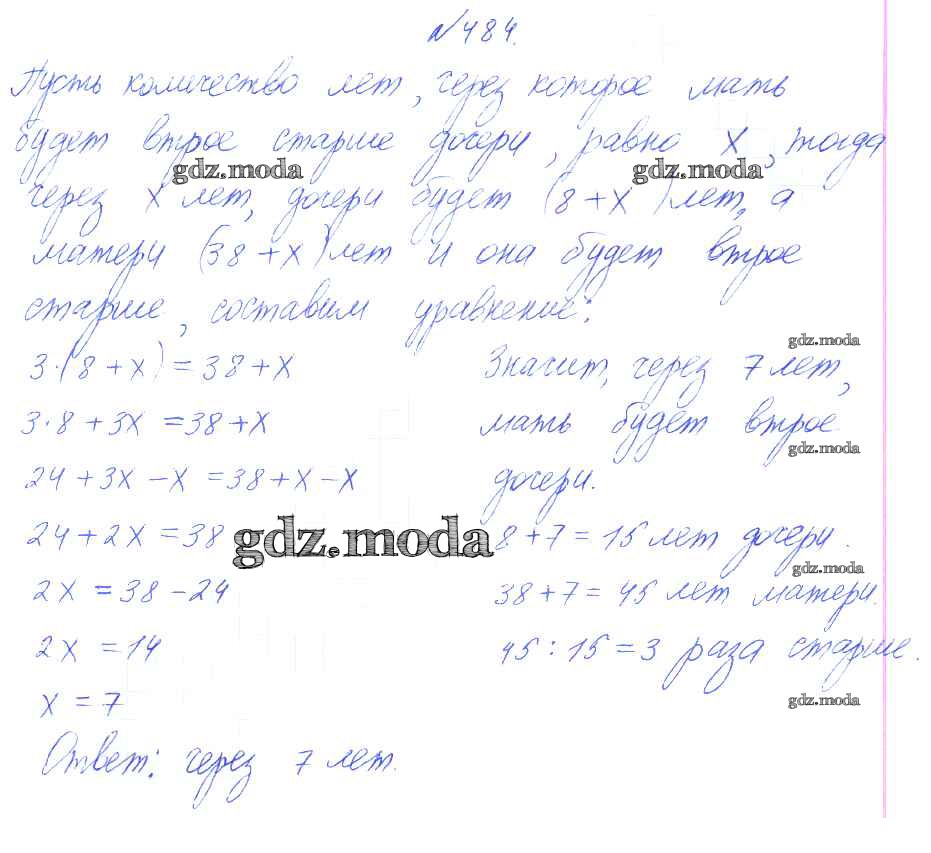 №484.
Пусть количество лет, через которое мать
будет втрое старше дочери, равно x, тогда
gdz.moda gdz.moda
через x лет, дочери будет (8+x) лет, а
матери (38+x) лет и она будет втрое
старше, составим уравнение:
gdz.moda
3·(8+x)=38+x
3·8+3x=38+x
24+3x-x=38+x-x
24+2x=38
gdz.moda
2x=38-24
2x=14
x=7
Ответ: через 7 лет.
Значит, через 7 лет,
мать будет втрое
gdz.moda
дочери.
8+7=15 лет дочери.
gdz.moda
38+7=45 лет матери.
45:15=3 раза старше.
gdz.moda